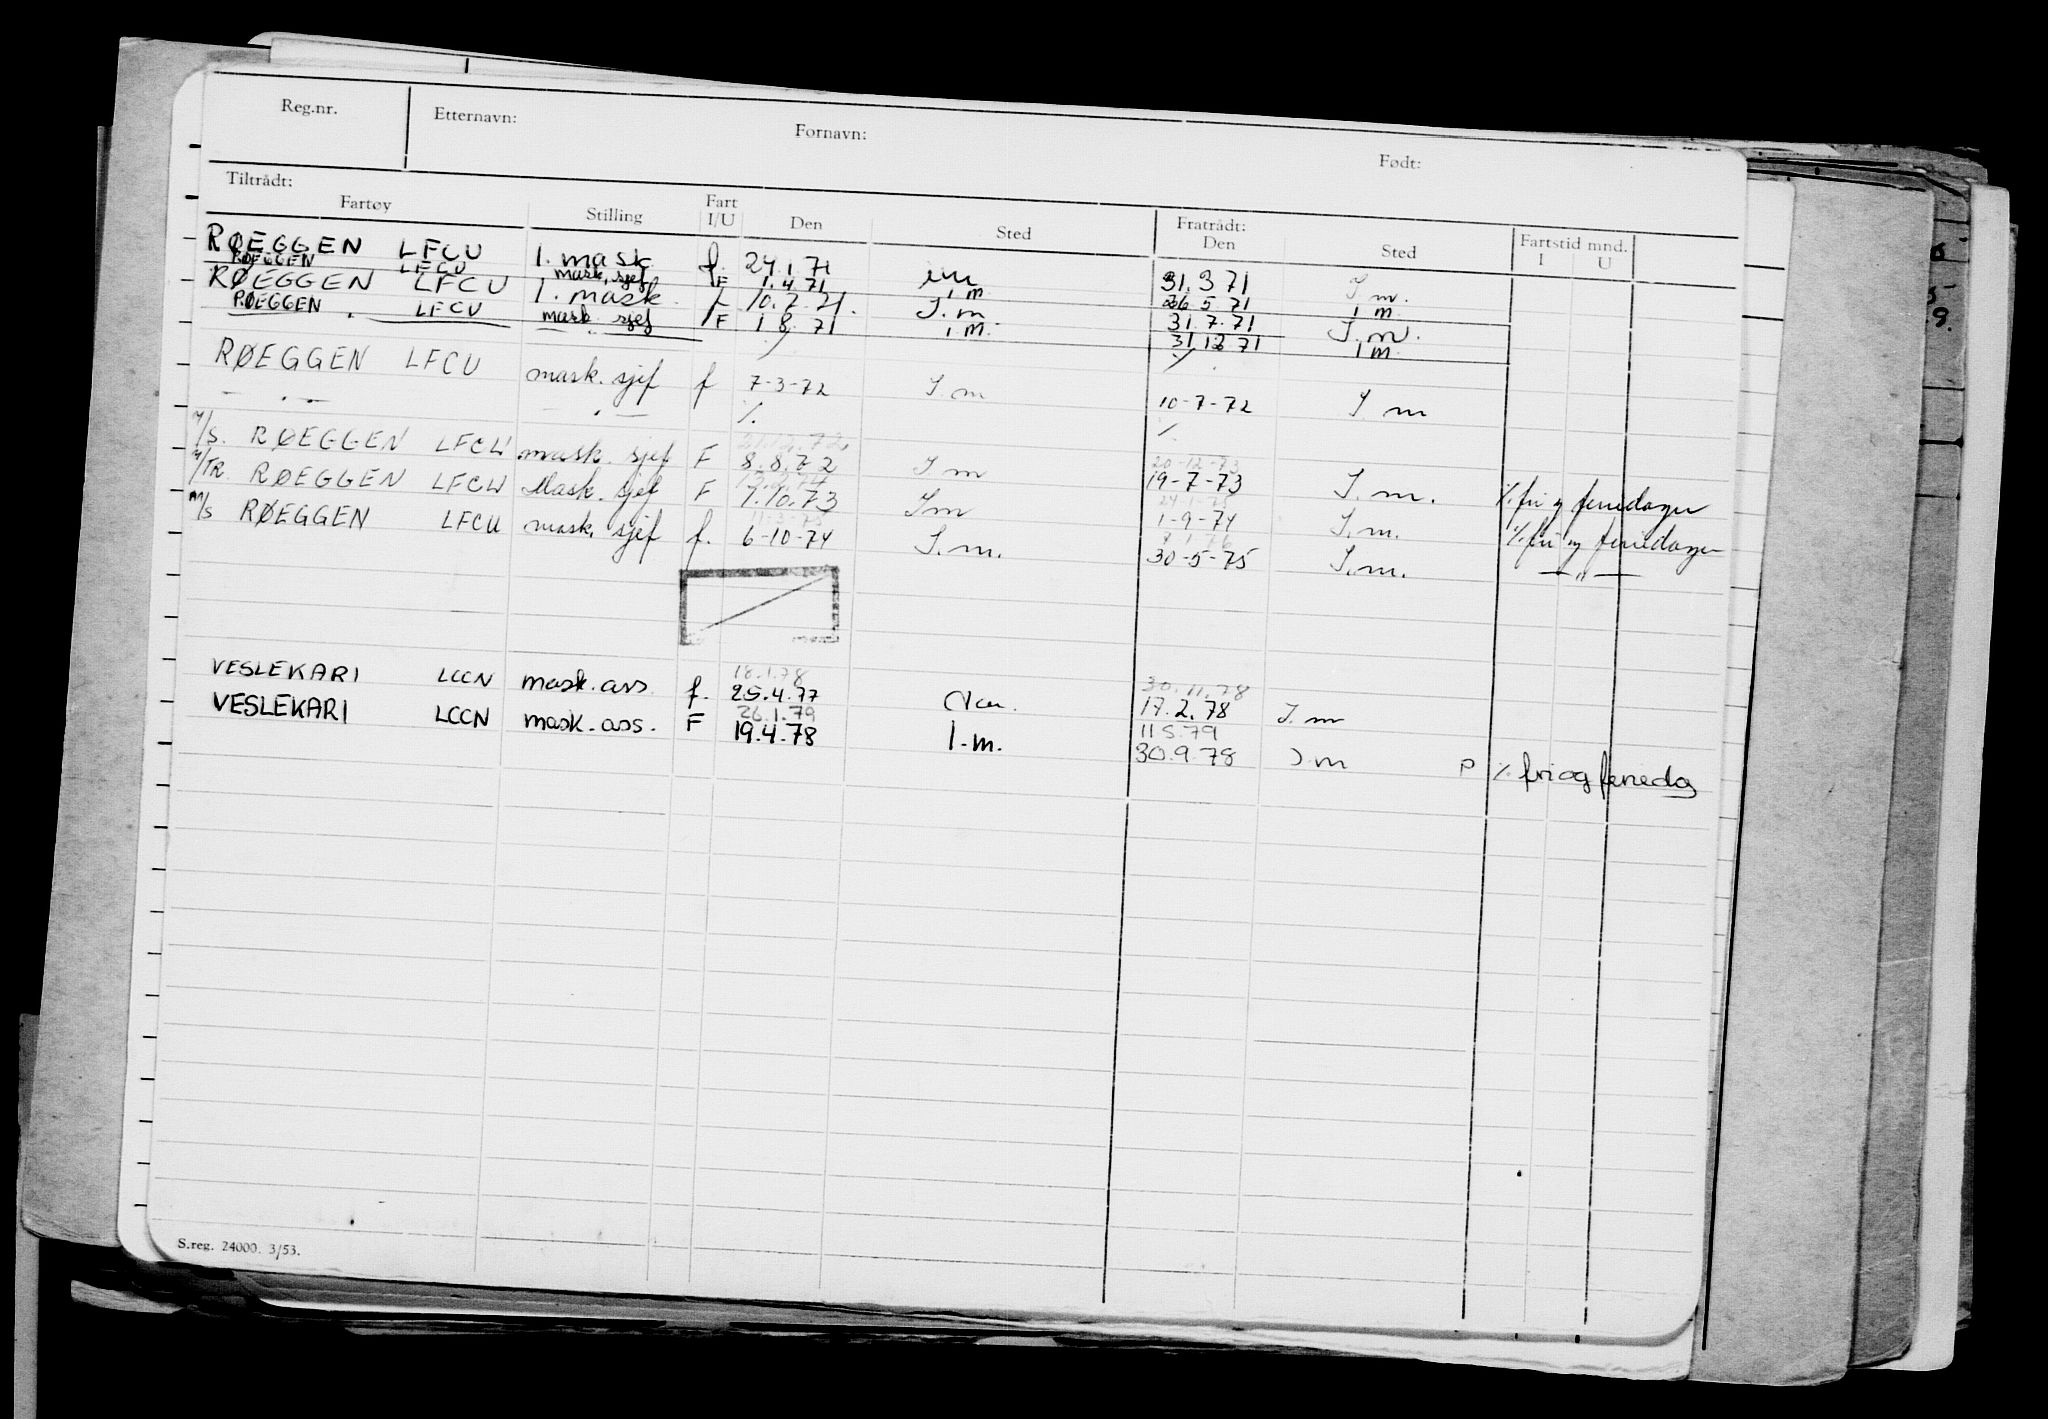 Reg.nr. Etternavn: Fornavn: Født:
Tiltrådt: Fratrådt:
Fartøy Stilling Fart I/U Den Sted Den Sted Fartstid mnd. I U
RØEGGEN LFCU 1. mask f. 24.1.71 31.3.71 I.m.
RØEGGEN LFCU mask. sjef F 1.4.71 I m 26.5.71 I m.
RØEGGEN LFCU 1. mask. f 10.7.71. I.m 31.7.71 I.m.
RØEGGEN LFCU mask sjef F 1.8.71 I m. 31.12.71 I m.
RØEGGEN LFCU mask. sjef f 7-3-72 I.m 10-7-72 I m
— " — — " — ./. ./.
21.12.72. 20-12-73
M/S. RØEGGEN LFCU mask. sjef F 8.8.72 I m 19-7-73 I.m. ./. fri og feriedager
M/TR. RØEGGEN LFCU Mask. sjef F 7.10.73 I m 1-9-74 I.m. ./. fri og feriedager
M/S RØEGGEN LFCU mask. sjef f. 6-10-74 I.m. 30-5-75 I.m. — " —
18.1.78 30.11.78
VESLEKARI LCCN mask.ass. f. 25.4.77 17.2.78 I.m
26.1.79 11.5.79
VESLEKARI LCCN mask.ass. F 19.4.78 I.m. 30.9.78 I.m P ./. fri og feriedag
S.reg. 24000. 3/53.